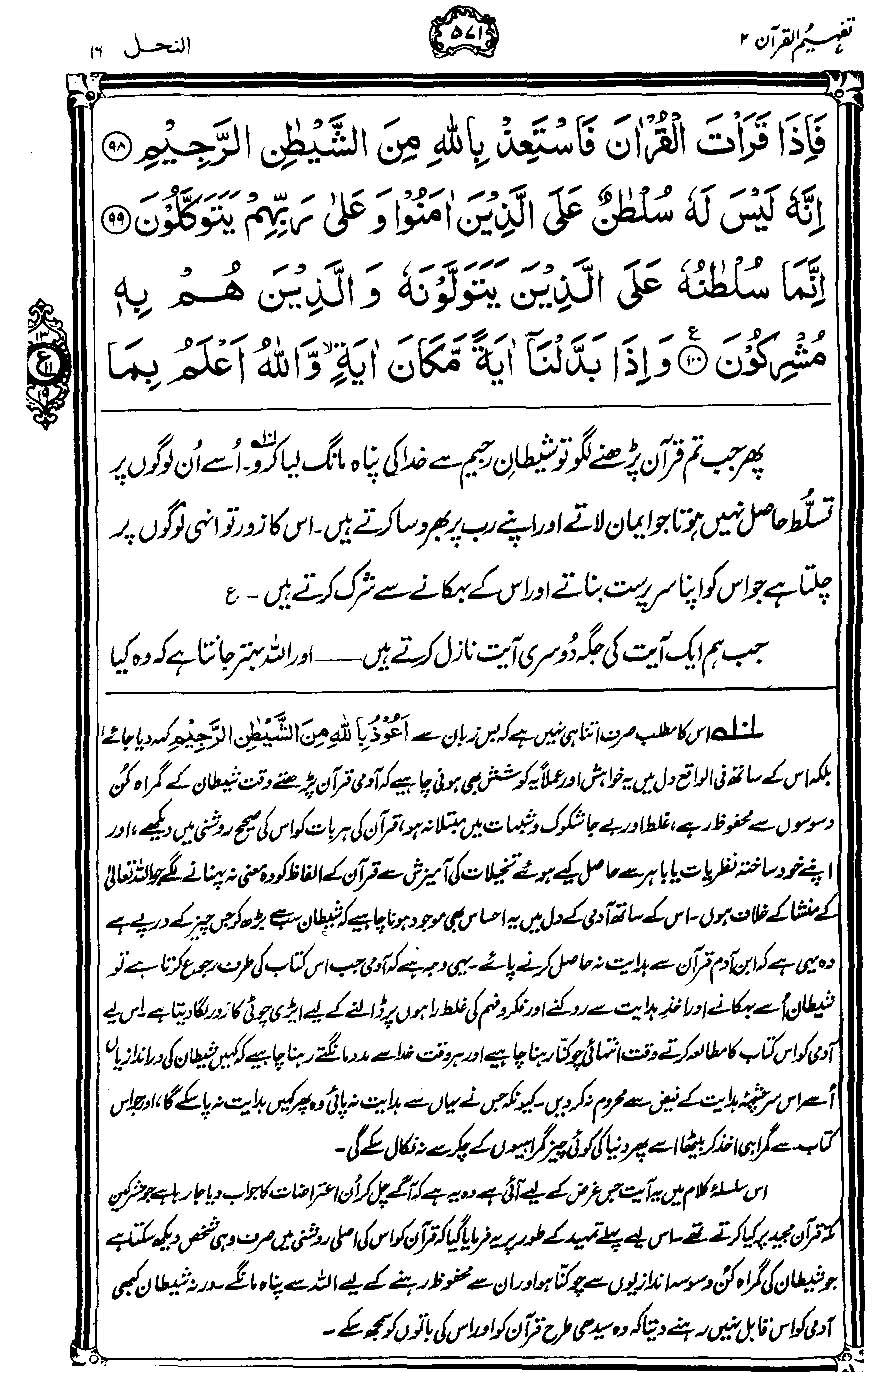 تفہیم القرآن ۲
۵۷۱
النحل ۱۶
فَاِذَا قَرَاْتَ الْقُرْاٰنَ فَاسْتَعِذْ بِاللّٰهِ مِنَ الشَّیْطٰنِ الرَّجِیْمِ ﴿۹۸﴾
اِنَّهٗ لَیْسَ لَهٗ سُلْطٰنٌ عَلَی الَّذِیْنَ اٰمَنُوْا وَ عَلٰی رَبِّهِمْ یَتَوَكَّلُوْنَ ﴿۹۹﴾
اِنَّمَا سُلْطٰنُهٗ عَلَی الَّذِیْنَ یَتَوَلَّوْنَهٗ وَ الَّذِیْنَ هُمْ بِهٖ
مُشْرِكُوْنَ ﴿۱۰۰﴾ ع وَ اِذَا بَدَّلْنَاۤ اٰیَةً مَّكَانَ اٰیَةٍ ۙ وَّ اللّٰهُ اَعْلَمُ بِمَا
۱۳
ع ۱۱
۱۹
پھر جب تم قرآن پڑھنے لگو تو شیطانِ رجیم سے خدا کی پناہ مانگ لیا کرو۱۰۱۔ اُسے اُن لوگوں پر
تسلّط حاصل نہیں ہوتا جو ایمان لاتے اور اپنے رب پر بھروسا کرتے ہیں۔ اس کا زور تو انہی لوگوں پر
چلتا ہے جو اس کو اپنا سرپرست بناتے اور اس کے بہکانے سے شرک کرتے ہیں۔ ع
جب ہم ایک آیت کی جگہ دُوسری آیت نازل کرتے ہیں ــــــ اور اللہ بہتر جانتا ہے کہ وہ کیا
۱۰۱ اس کا مطلب صرف اتنا ہی نہیں ہے کہ بس زبان سے اَعُوْذُ بِاللّٰهِ مِنَ الشَّیْطٰنِ الرَّجِیْمِ کہہ دیا جائے،
بلکہ اس کے ساتھ فی الواقع دل میں یہ خواہش اور عملاً یہ کوشش بھی ہونی چاہیے کہ آدمی قرآن پڑھتے وقت شیطان کے گمراہ کُن
وسوسوں سے محفوظ رہے، غلط اور بے جا شکوک و شبہات میں مبتلا نہ ہو، قرآن کی ہر بات کو اس کی صحیح روشنی میں دیکھے، اور
اپنے خود ساختہ نظریات یا باہر سے حاصل کیے ہوئے تخیلات کی آمیزش سے قرآن کے الفاظ کو وہ معنی نہ پہنانے لگے جو اللہ تعالیٰ
کے منشا کے خلاف ہوں۔ اس کے ساتھ آدمی کے دل میں یہ احساس بھی موجود ہونا چاہیے کہ شیطان سب سے بڑھ کر جس چیز کے درپے ہے
وہ یہی ہے کہ ابن آدم قرآن سے ہدایت نہ حاصل کرنے پائے۔ یہی وجہ ہے کہ آدمی جب اس کتاب کی طرف رجوع کرتا ہے تو
شیطان اُسے بہکانے اور اخذِ ہدایت سے روکنے اور فکر و فہم کی غلط راہوں پر ڈالنے کے لیے ایڑی چوٹی کا زور لگا دیتا ہے۔ اس لیے
آدمی کو اس کتاب کا مطالعہ کرتے وقت انتہائی چوکنّا رہنا چاہیے اور ہر وقت خدا سے مدد مانگتے رہنا چاہیے کہ کہیں شیطان کی دراندازیاں
اُسے اس سرچشمۂ ہدایت کے فیض سے محروم نہ کر دیں۔ کیونکہ جس نے یہاں سے ہدایت نہ پائی وہ پھر کہیں ہدایت نہ پا سکے گا، اور جو اس
کتاب سے گمراہی اخذ کر بیٹھا اسے پھر دنیا کی کوئی چیز گمراہیوں کے چکر سے نہ نکال سکے گی۔
اس سلسلۂ کلام میں یہ آیت جس غرض کے لیے آئی ہے وہ یہ ہے کہ آگے چل کر اُن اعتراضات کا جواب دیا جا رہا ہے جو مشرکینِ
مکہ قرآن مجید پر کیا کرتے تھے۔ اس لیے پہلے تمہید کے طور پر یہ فرمایا گیا کہ قرآن کو اس کی اصلی روشنی میں صرف وہی شخص دیکھ سکتا ہے
جو شیطان کی گمراہ کُن وسوسہ اندازیوں سے چوکنّا ہو اور ان سے محفوظ رہنے کے لیے اللہ سے پناہ مانگے۔ ورنہ شیطان کبھی
آدمی کو اس قابل نہیں رہنے دیتا کہ وہ سیدھی طرح قرآن کو اور اس کی باتوں کو سمجھ سکے۔